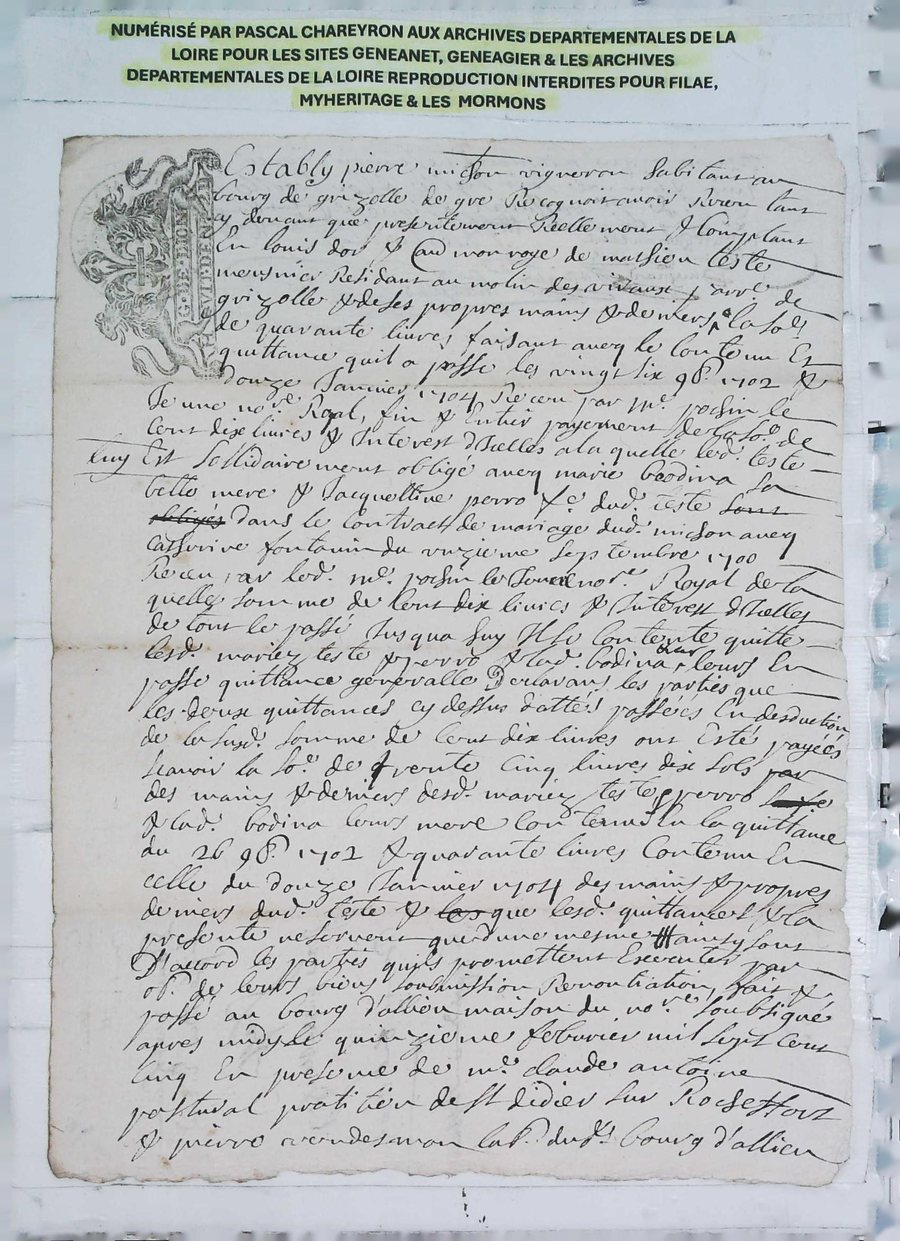 NUMÉRISÉ PAR PASCAL CHAREYRON AUX ARCHIVES DEPARTEMENTALES DE LA
LOIRE POUR LES SITES GENEANET, GENEAGIER & LES ARCHIVES
DEPARTEMENTALES DE LA LOIRE REPRODUCTION INTERDITES POUR FILAE,
MYHERITAGE & LES MORMONS
G. DE LION
Estably pierre micson vigneron habitant au
bourg de grizolle de gre Recognoit avoir Receu tant
cy devant que presentement Reellement & Comptant
En louis dor & monnoye de mathieu teste
meusnier Residant au molin des rivaux parre de
grizolle & de ses propres mains & deniers la so.e
de quarante livres faisant avecq le Contenu Et
quittance quil a passé les vingt six 9b.e 1702 &
douze Janvier 1704 Receu par m.e possin le
Jeune no.re Royal, fin & Entier payement de la So.e de
Cent dix livres & Interest d'Icelles a la quelle led. teste
luy Est sollidairement obligé avecq marie bodina sa
belle mere & Jacquelline perro f.e dud. teste sont
obligés dans le Contract de mariage dud. micson avecq
Catherine fontanin du unzieme Septembre 1700
Receu par led. m.e possin le Jeune no.re Royal de la
quelle somme de Cent dix livres & Interest d'Icelles
de tout le passé Jusqua huy Il se Contente quitte
lesd. mariez teste & perro & lad. bodina leurs En
passe quittance generalle Declarans les parties que
les deux quittances cy dessus dattés passées En desduction
de la susd. somme de Cent dix livres ont Esté payées
scavoir la So.e de trente Cinq livres dix sols par
des mains & deniers desd. mariez teste perro
& lad. bodina leurs mere Contenus En la quittance
du 26 9b.e 1702 & quarante livres Contenu En
celle du douze Janvier 1704 des mains & propres
deniers dud. teste & les que lesd. quittances & la
presente ne servent que dune mesme ainsy sont
D'accord les parties quils promettent Executer par
ob.e de leurs biens soubmission Renontiation, fait &
passé au bourg d'allieu maison du no.re soubsigné
apres midy le quinzieme febvrier mil sept Cent
Cinq En presence de m.e claude antoine
pastural pratitien de St didier sur Rocheffort
& pierre vendesmon lab.r dud. bourg d'allieu